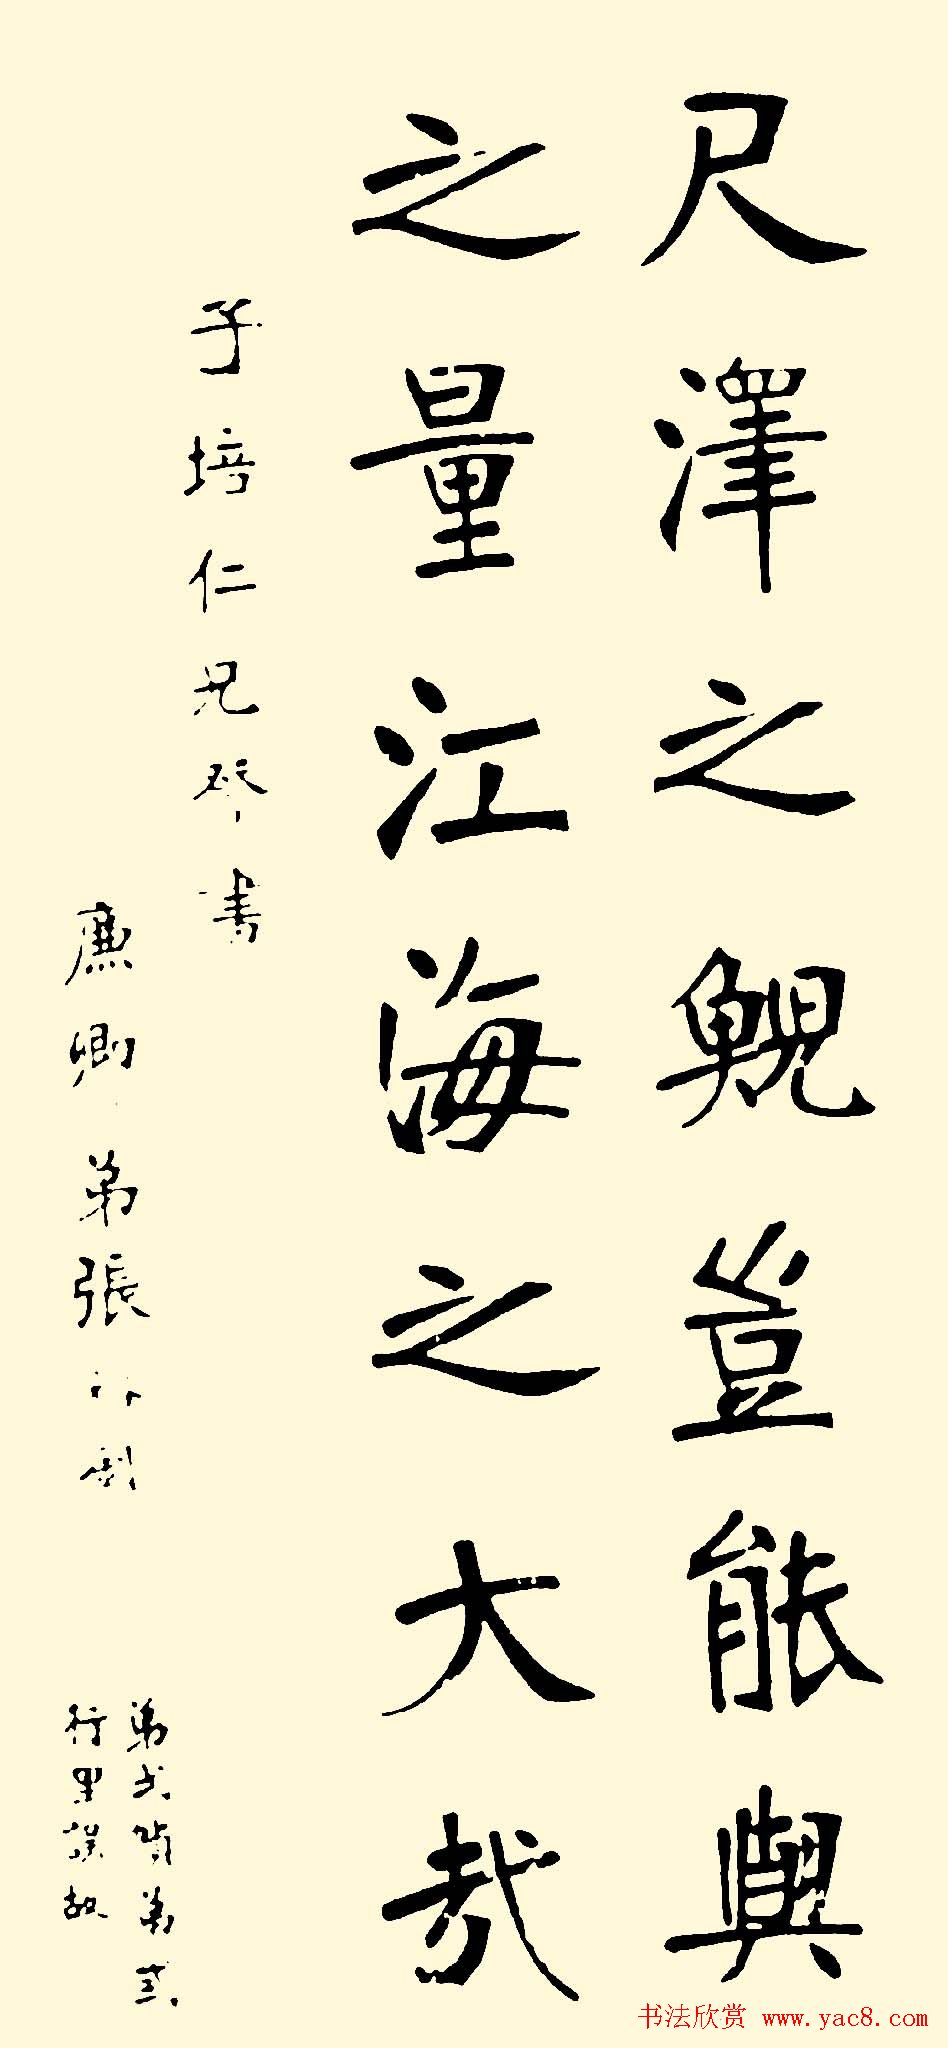 尺澤之鯢豈能與
之量江海之大哉
子培仁兄發書
廉卿弟張裕釗
書法欣赏 www.yac8.com